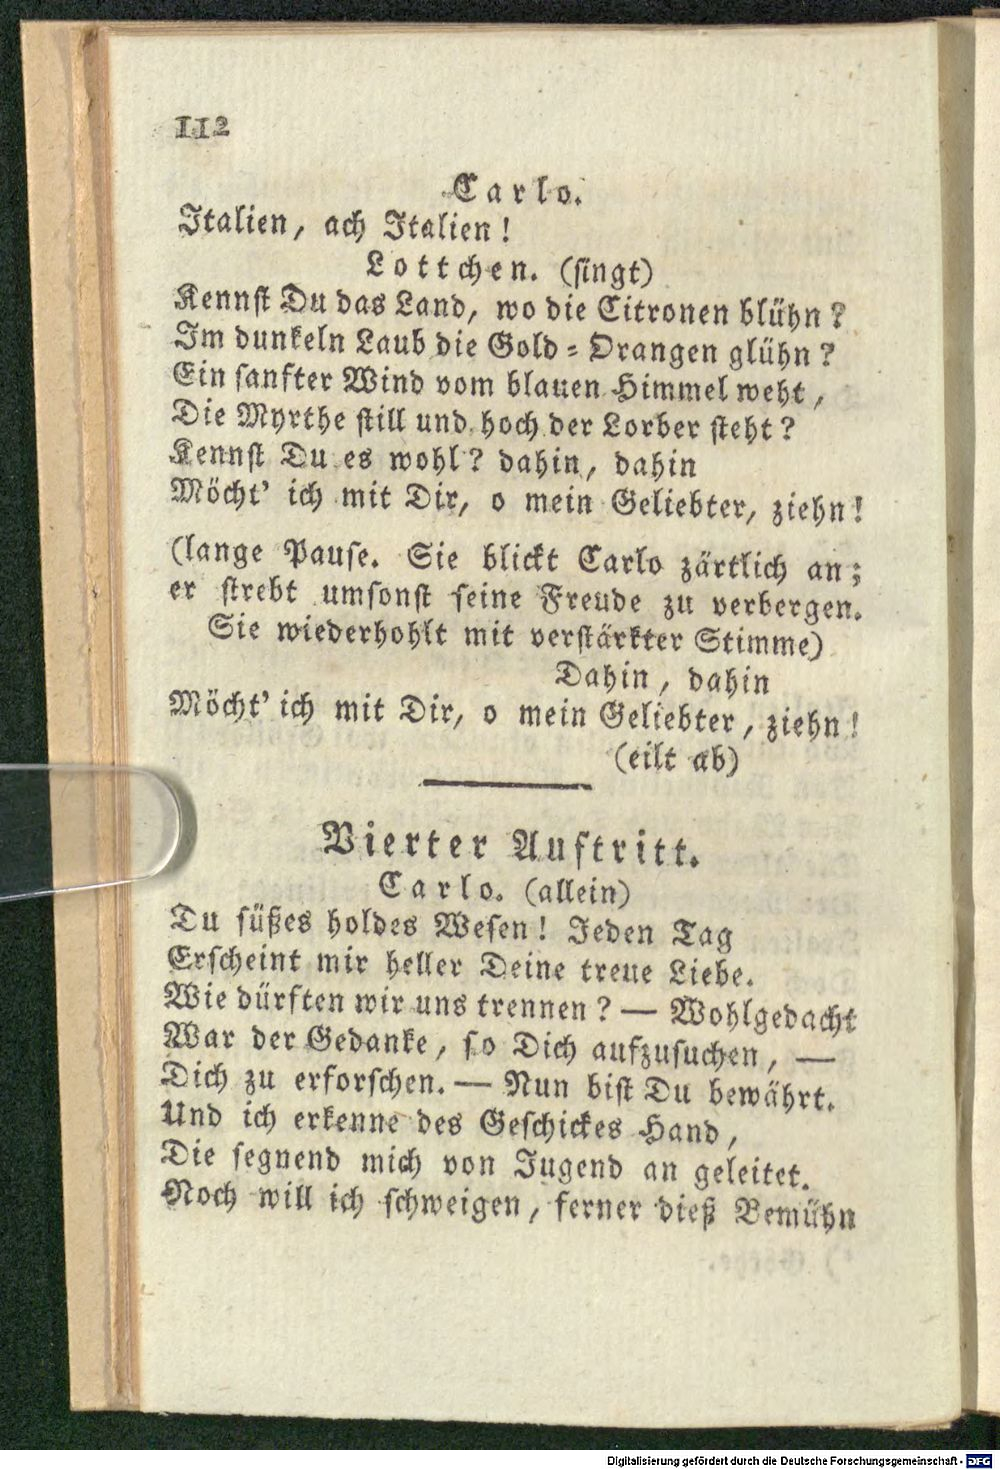 112
Carlo.
Italien, ach Italien!
Lottchen. (singt)
Kennst Du das Land, wo die Citronen blühn?
Im dunkeln Laub die Gold=Orangen glühn?
Ein sanfter Wind vom blauen Himmel weht,
Die Myrthe still und hoch der Lorber steht?
Kennst Du es wohl? dahin, dahin
Möcht' ich mit Dir, o mein Geliebter, ziehn!
(lange Pause. Sie blickt Carlo zärtlich an;
er strebt umsonst seine Freude zu verbergen.
Sie wiederhohlt mit verstärkter Stimme)
Dahin, dahin
Möcht' ich mit Dir, o mein Geliebter, ziehn!
(eilt ab)
Vierter Auftritt.
Carlo. (allein)
Du süßes holdes Wesen! Jeden Tag
Erscheint mir heller Deine treue Liebe.
Wie dürften wir uns trennen? — Wohlgedacht
War der Gedanke, so Dich aufzusuchen, —
Dich zu erforschen. — Nun bist Du bewährt.
Und ich erkenne des Geschickes Hand,
Die segnend mich von Jugend an geleitet.
Noch will ich schweigen, ferner dieß Bemühn
Digitalisierung gefördert durch die Deutsche Forschungsgemeinschaft - DFG